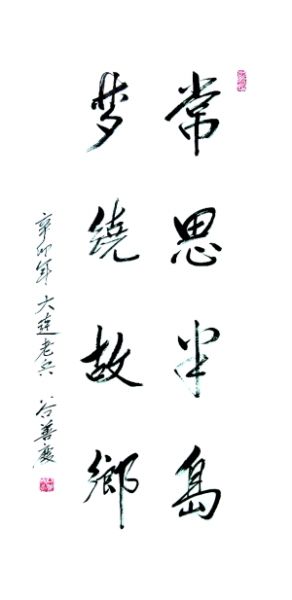 常思半島
梦繞故鄉
辛卯年 大連老兵 谷善慶